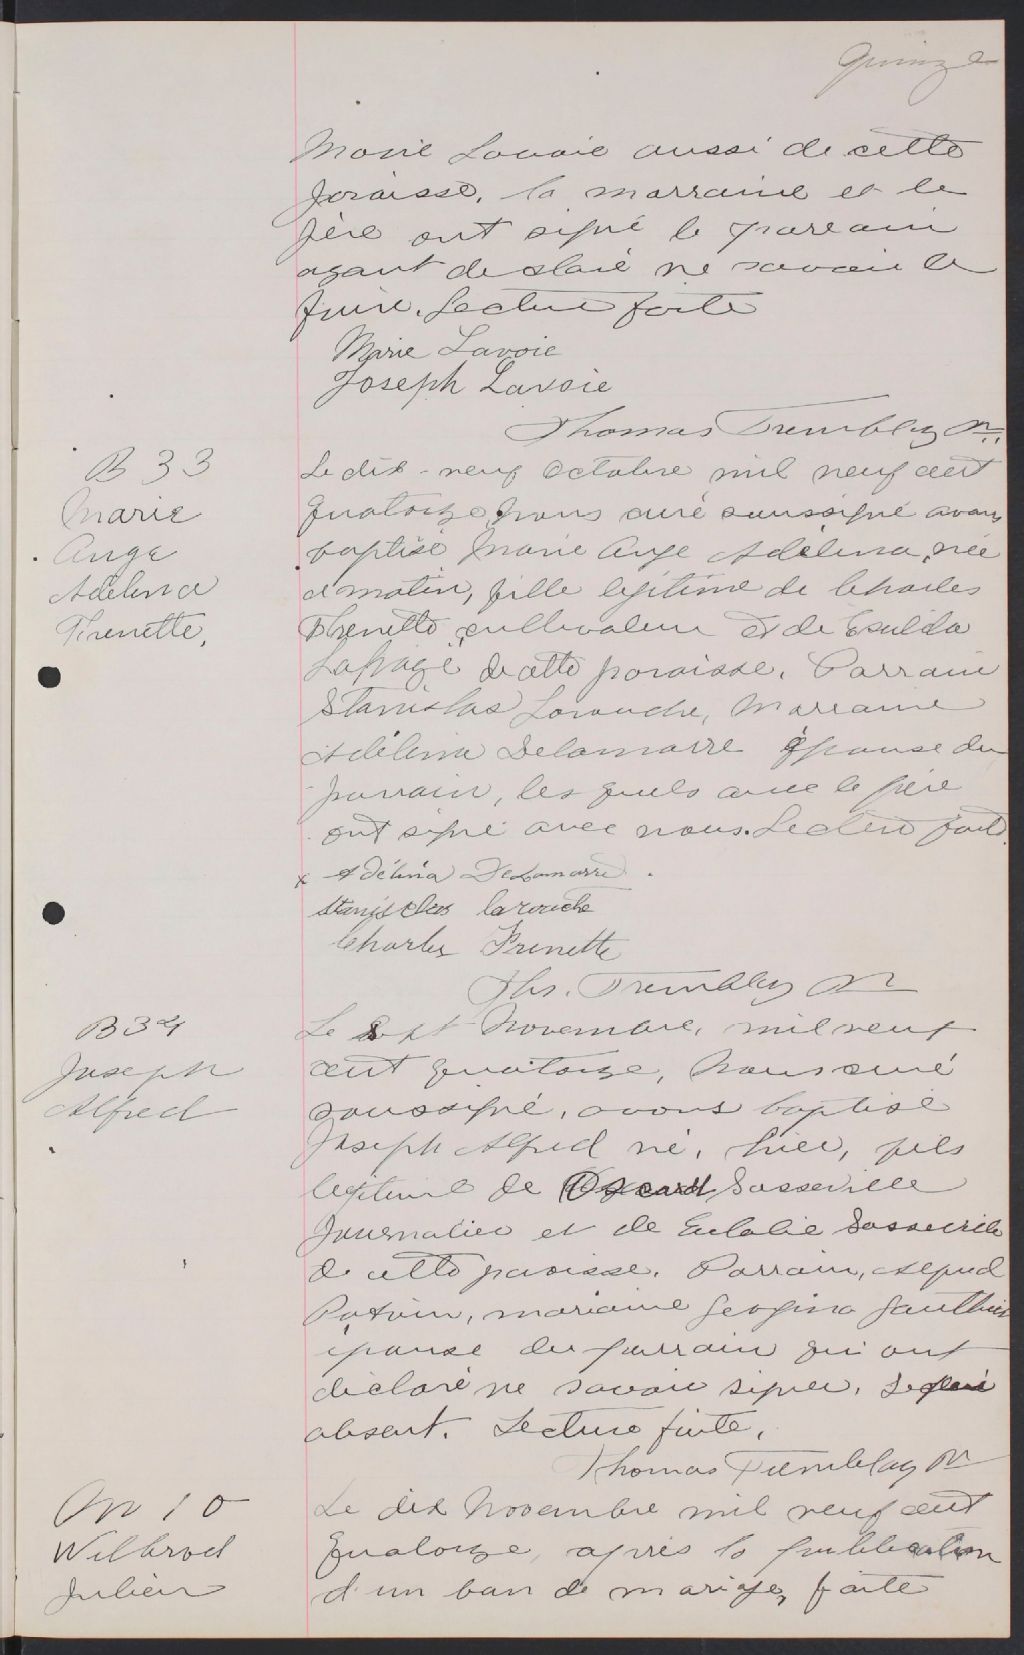 Quinze
Marie Lavoie aussi de cette
paroisse, la marraine et le
père ont signé le parrain
ayant declaré ne savoir le
faire. Lecture faite
Marie Lavoie
Joseph Lavoie
Thomas Tremblay Ptr.
B 33
Marie
Ange
Adélina
Frenette,
Le dix-neuf Octobre mil neuf cent
quatorze, nous curé soussigné avons
baptisé Marie Ange Adélina, née
ce matin, fille légitime de Charles
Frenette, cultivateur et de Exilda
Lapagé de cette paroisse. Parrain
Stanislas Larouche, Marraine
Adélina Delamarre épouse du
parrain, les quels avec le père
ont signé avec nous. Lecture faite.
x Adélina DeLamarre.
Stanislas larouche
Charles Frenette
Ths. Tremblay Ptr
B 34
Joseph
Alfred
Le Sept Novembre, mil neuf
cent quatorze, Nous curé
soussigné, avons baptisé
Joseph Alfred né, hier, fils
légitime de Oscard, Sasseville
Journalier et de Eulalie Sasseville
de cette paroisse. Parrain, Alfred
Potvin, marraine Georgina Gauthier
épouse du parrain qui ont
déclaré ne savoir signer. Le père
absent. Lecture faite,
Thomas Tremblay Ptr
M 10
Wilbrod
Julien
Le dix Novembre mil neuf cent
quatorze, après la publication
d'un ban de mariage, faite